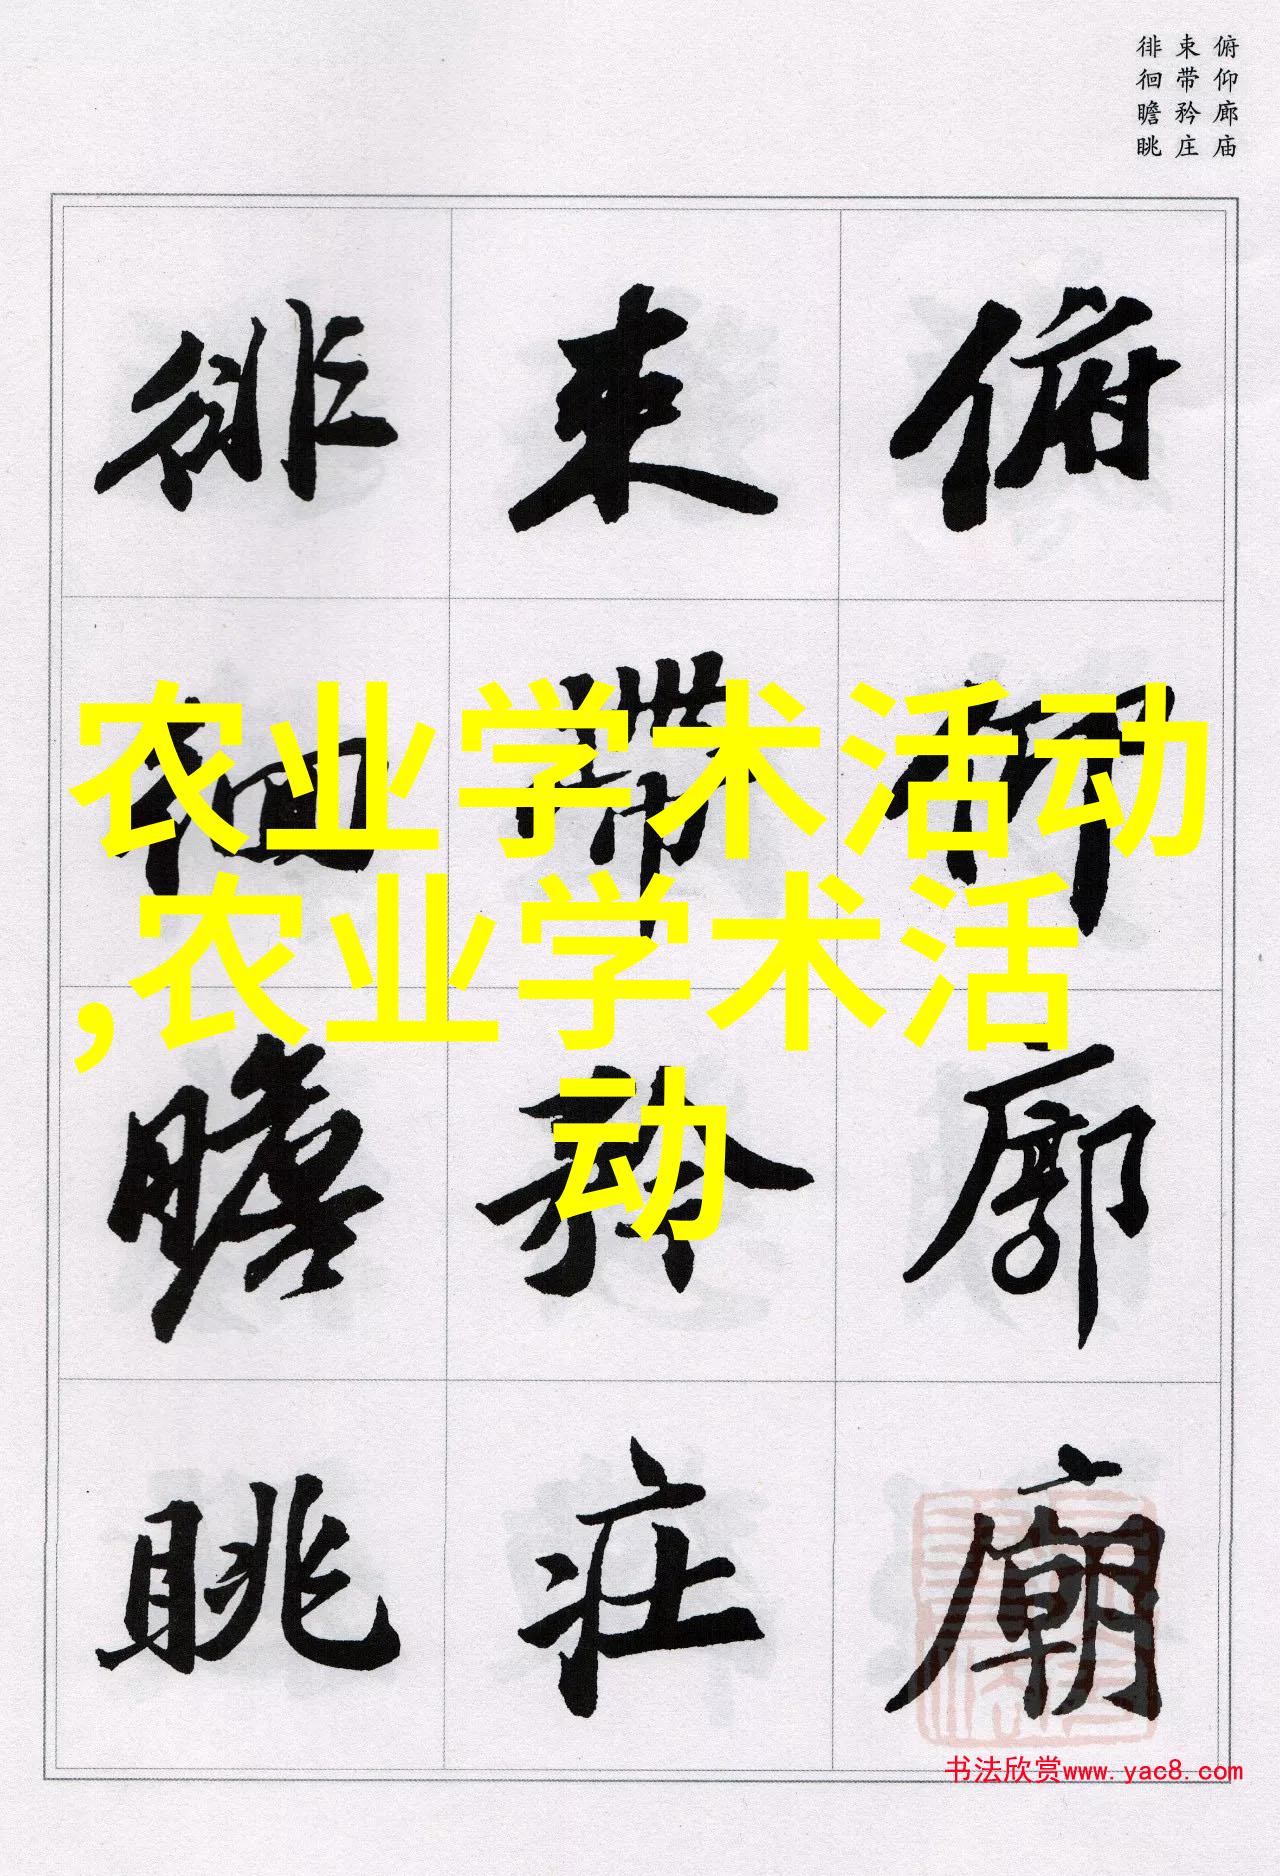 俯仰廊庙
束带矜庄
徘徊瞻眺
俯仰廊廟
束帶矜莊
徘徊瞻眺
农业学术活动
,农业学术活
动
书法欣赏www.yac8.com